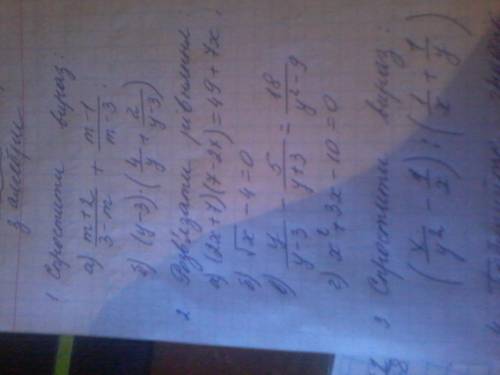 з алгебри
1 Спростити вираз:
а) (m+2)/(3-m) + (m-1)/(m-3)
б) (y-3)·(4/y + 2/(y-3))
2 Розв'язати рівняння:
а) (2x+7)(7-2x)=49+7x
б) √x - 4=0
в) y/(y-3) - 5/(y+3) = 18/(y²-9)
г) x²+3x-10=0
3 Спростити вираз:
(x/y² - 1/x) : (1/x + 1/y)